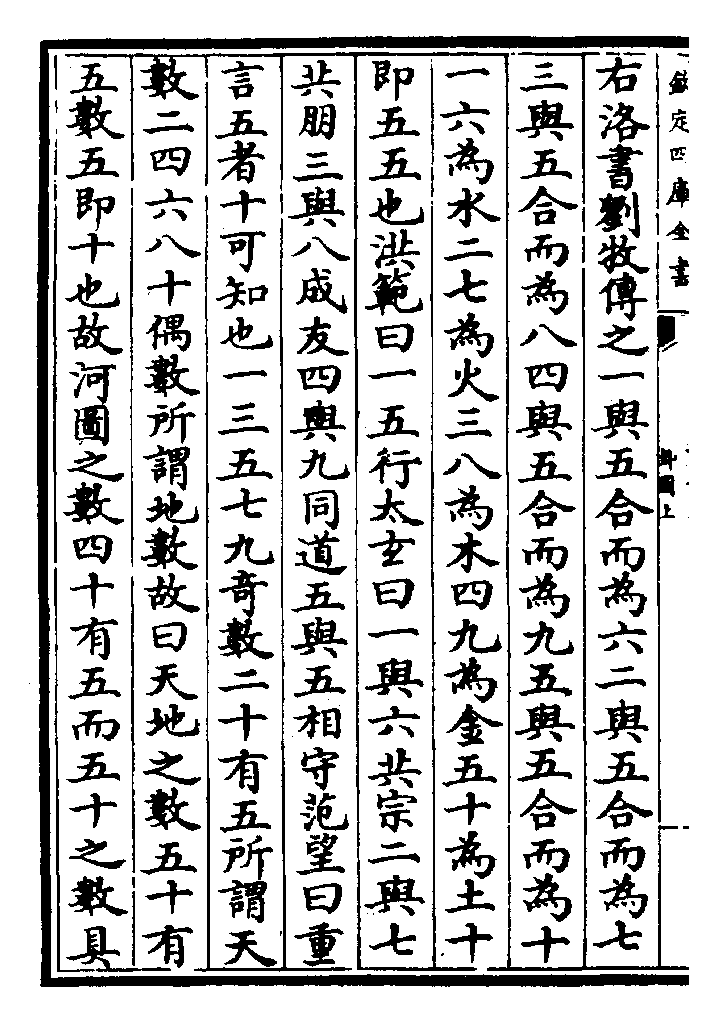 欽定四庫全書
卦圖上
右洛書劉牧傳之一與五合而為六二與五合而為七
三與五合而為八四與五合而為九五與五合而為十
一六為水二七為火三八為木四九為金五十為土十
即五五也洪範曰一五行太玄曰一與六共宗二與七
共朋三與八成友四與九同道五與五相守范望曰重
言五者十可知也一三五七九奇數二十有五所謂天
數二四六八十偶數所謂地數故曰天地之數五十有
五數五即十也故河圖之數四十有五而五十之數具